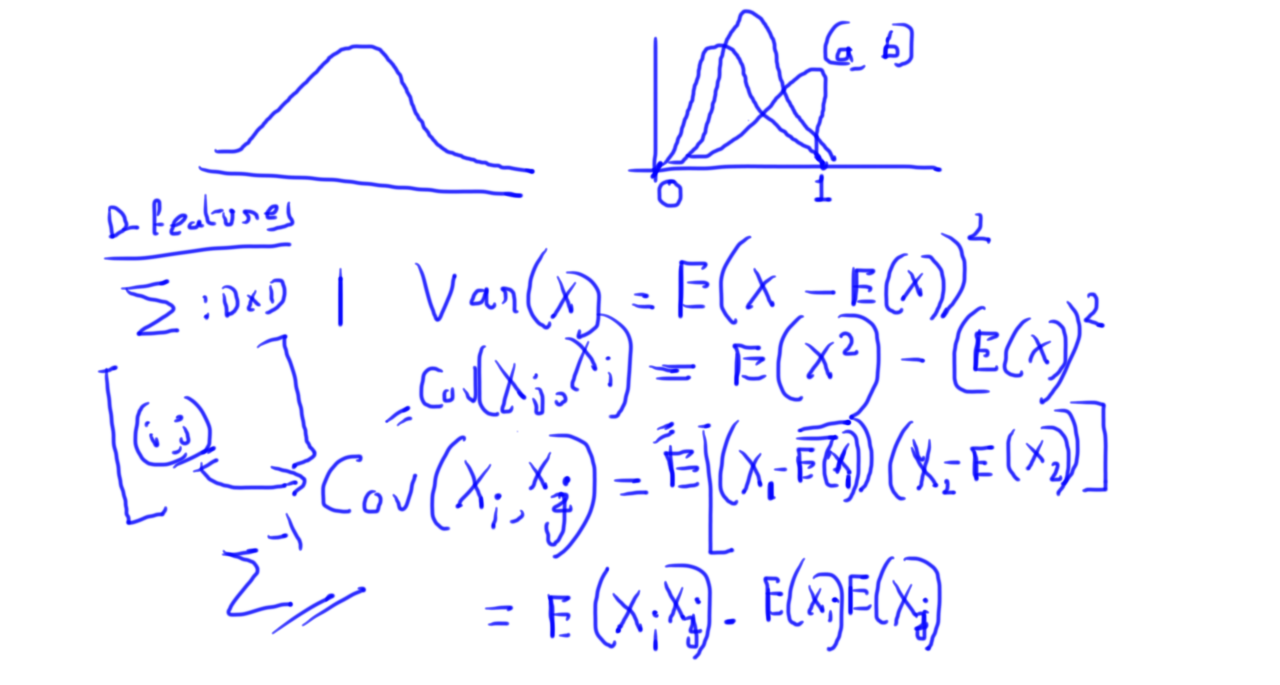 (a, b)
0 1
D features
Σ : D×D | Var(X) = E(X - E(X))²
= Cov(Xi, Xi) = E(X²) - (E(X))²
[(i,j)]
Cov(Xi, Xj) = E[(X₁ - E(X₁)) (X₂ - E(X₂))]
Σ⁻¹
= E(XiXj) - E(Xi)E(Xj)